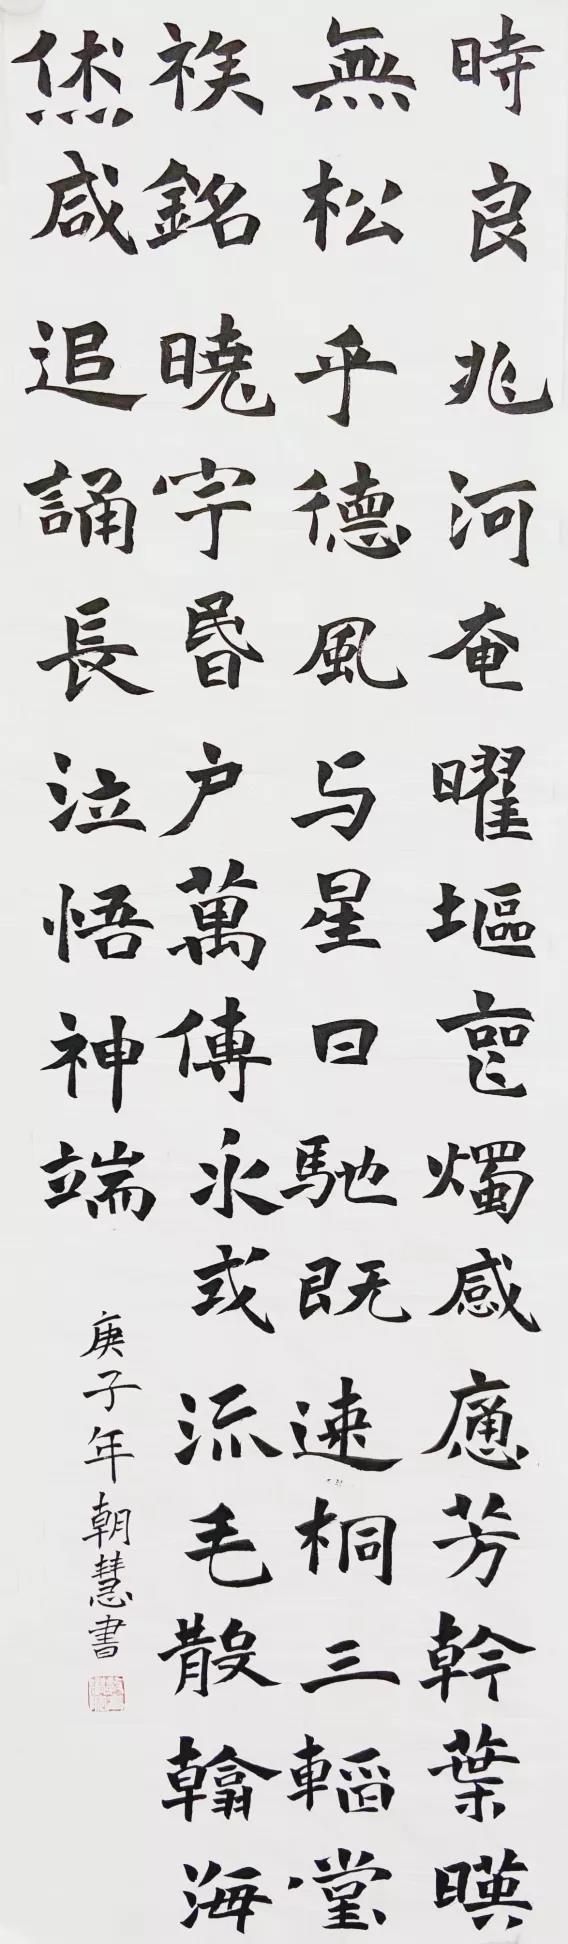 時良兆河奄曜堀芑燭感應芳幹葉暎
無松乎德風与星日馳既速桐三轁堂
褉銘曉宇昏户萬傳永或流毛散翰海
咸追誦長泣悟神端
庚子年朝慧書